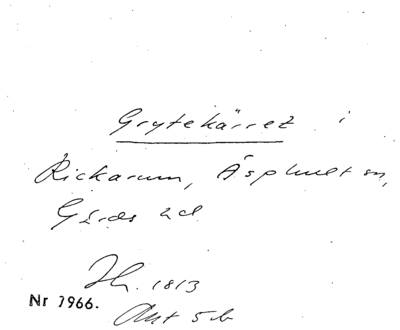 Grytekärret i
Rickarum, Äsphult sn,
Gärds hd
Jh. 1813
Nr 7966.
Akt 5b